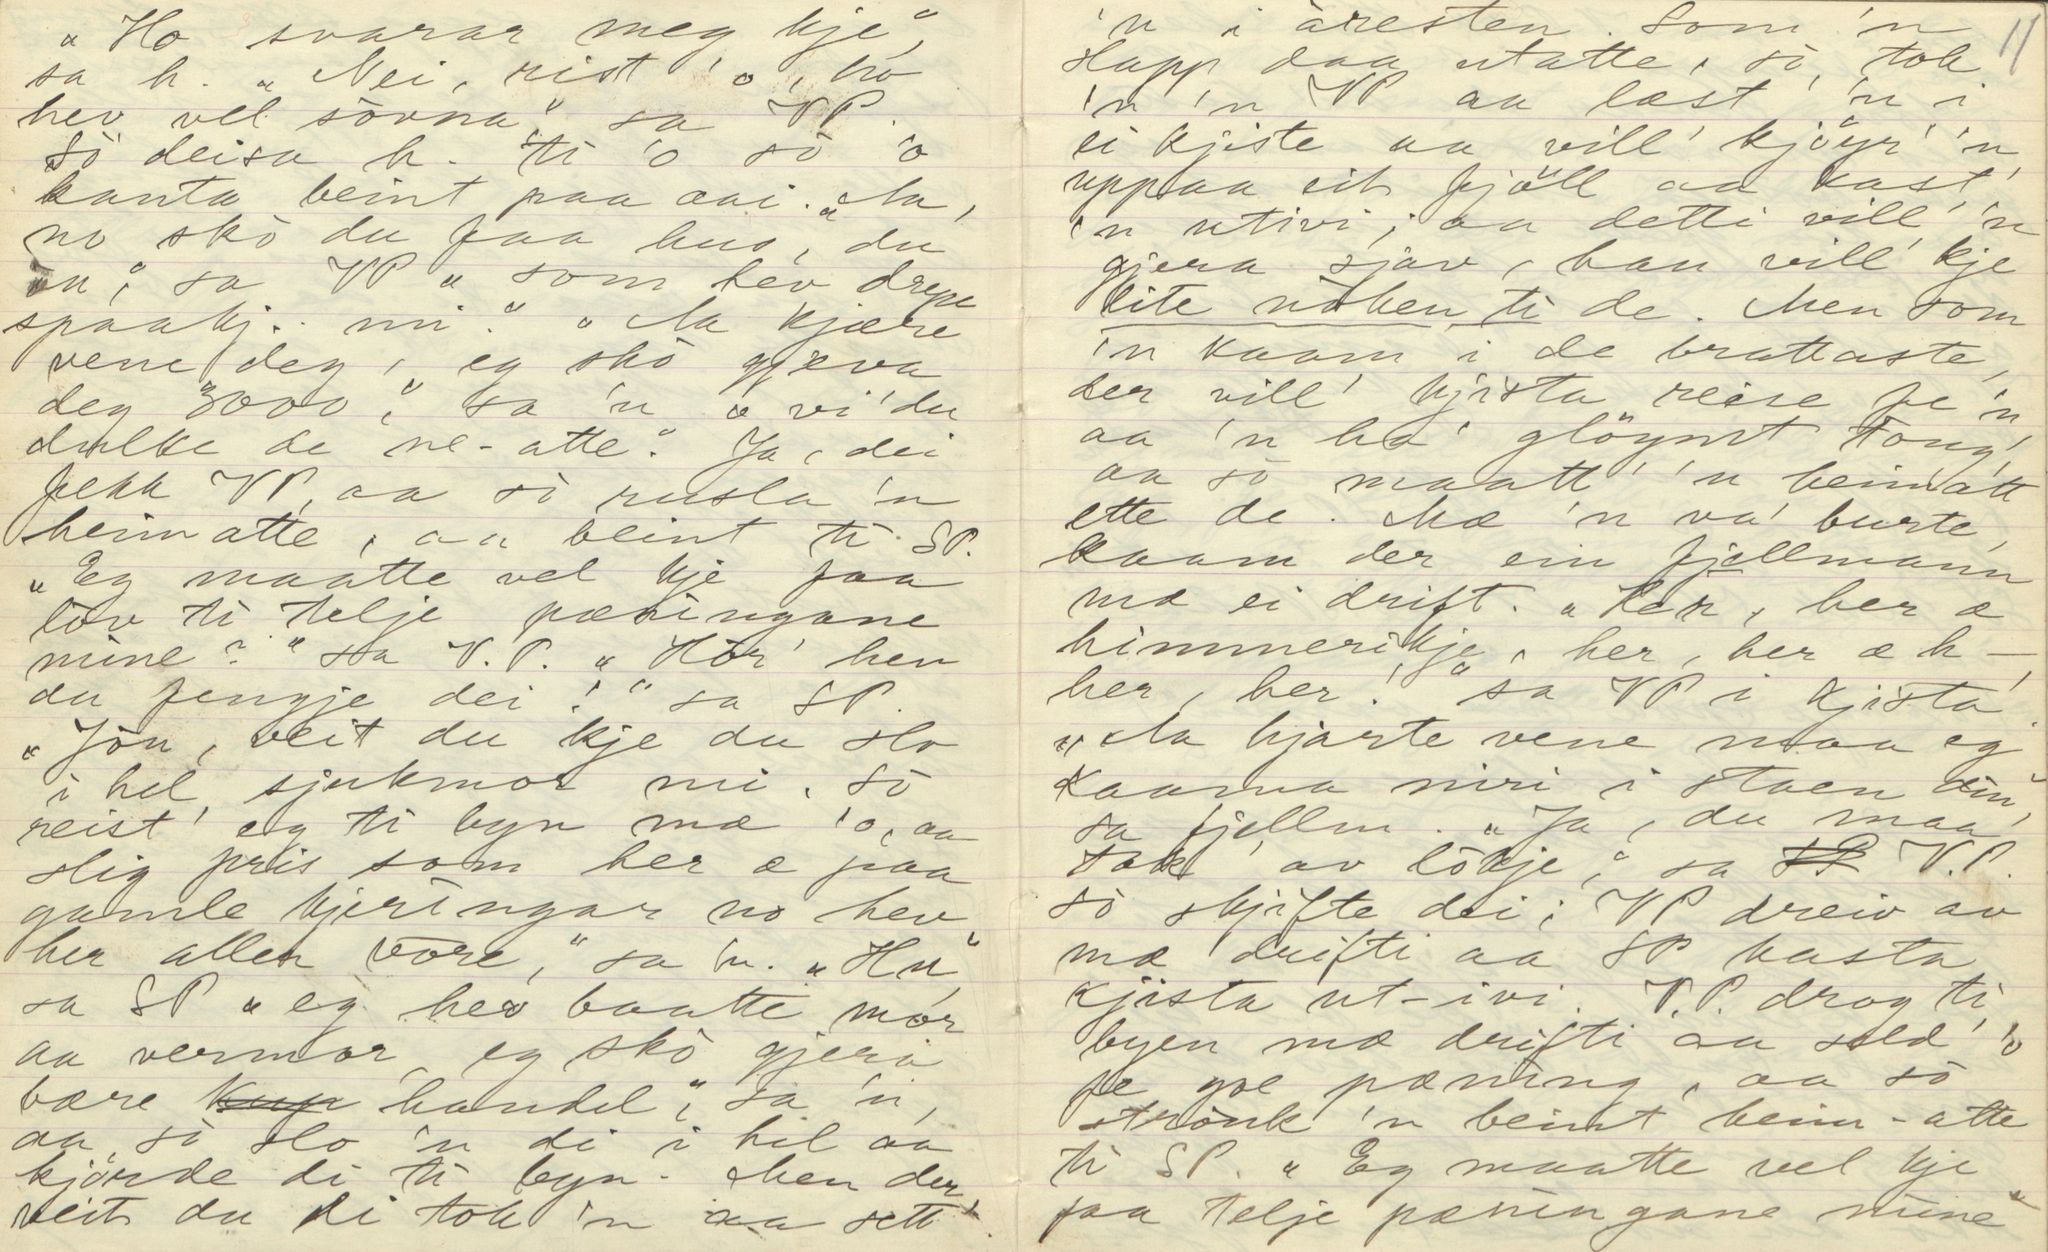 „Ho svarar meg kje“,
sa h. „Nei, rist 'o, ho
hev vel sövna“ sa VP.
Sö deisa h. ti 'o sö 'o
kanta beint paa aai. „Aa,
no skö du faa hug, du
en“, sa VP „som hev drepe
spaakj.. mi.“ „Aa kjære
vene deg, eg skö gjeva
deg 3000“, sa 'n „vi' du
dulke de ne-atte.“ Ja, dei
fekk VP, aa sö rusla 'n
heimatte, aa beint ti SP.
„Eg maatte vel kje faa
löv ti telje pæningane
mine?“ sa V.P. „Hör' hen
du fengje dei!“ sa SP.
„Jön, veit du kje du slo
i hel sjukmor mi. Sö
reist' eg ti byn mæ 'o, aa
slig pris som her æ paa
gamle kjeringar no hev
her aller vöre,“ sa 'n. „Hu“
sa SP „eg hev baatte mor
aa vermor, eg skö gjera
bære kup handel“, sa 'n,
aa sö slo 'n di i hel aa
kjörde di ti byn. Men der
veit du di tok 'n aa sett'
11
'n i aresten. Som 'n
slapp daa utatte, sö tok
'n 'n VP aa læst' 'n i
ei kjiste aa vill' kjöyr' 'n
uppaa eit fjöll aa kast'
'n utivi; aa detti vill' 'n
gjera sjav, han vill' kje
lite nöken ti de. Men som
'n kaam i de brattaste,
der vill' kjista reise fe 'n,
aa 'n ha' glöymt tong,
aa sö maatt' 'n heimatt
ette de. Mæ 'n va' burte,
kaam der ein fjellmann
mæ ei drift. „Her, her æ
himmerikje, her, her æ h—
her, her!“ sa VP i kjista.
„Aa hjarte vene maa eg
kaama niri i staen din“
sa fjellm. „Ja, du maa
tak' av lökje“, sa SP V.P.
Sö skjifte dei; VP dreiv av
mæ drifti aa SP kasta
kjista ut-ivi. V.P. drog ti
byen mæ drifti aa seld' 'o
fe goe pæning, aa sö
strönk 'n beint heim-atte
ti SP. „Eg maatte vel kje
faa telje pæningane mine“